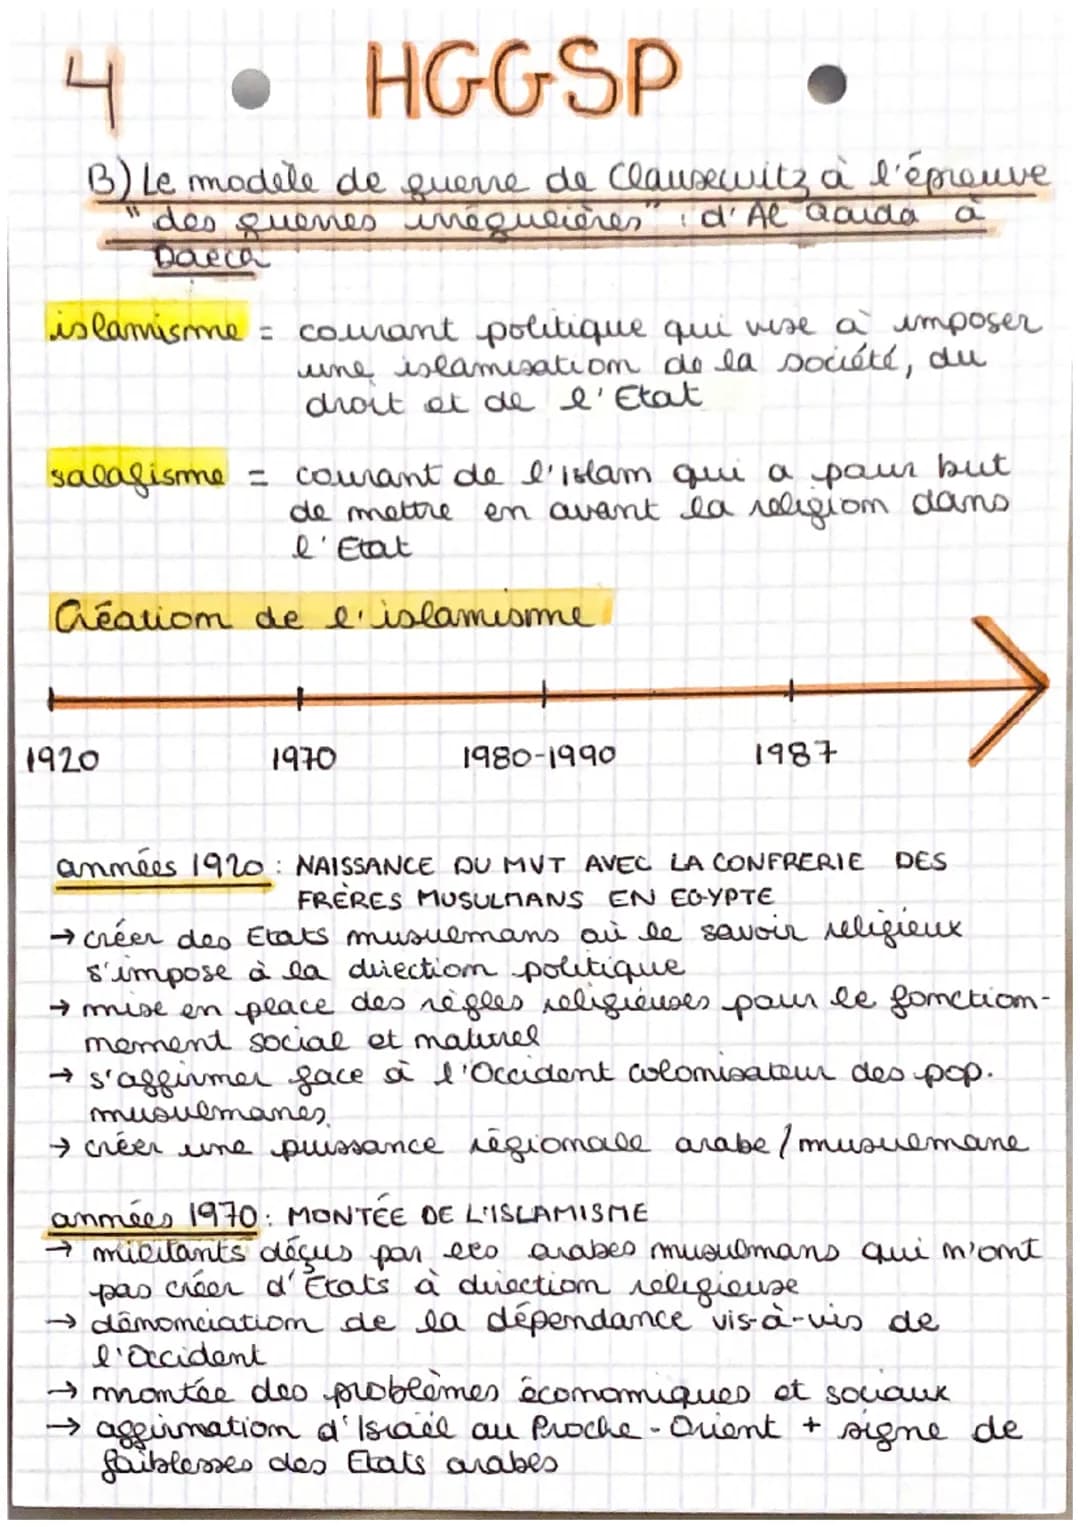 4 • HGGSP •
B) Le modèle de guerre de Clausewitz à l'épreuve
"des guerres irrégulières" : d'Al Qaïda à
Daech
islamisme = courant politique qui vise à imposer
une islamisation de la société, du
droit et de l'Etat
salafisme = courant de l'islam qui a pour but
de mettre en avant la religion dans
l'Etat
Création de l'islamisme
1920 1970 1980-1990 1987
années 1920 : NAISSANCE DU MVT AVEC LA CONFRERIE DES
FRÈRES MUSULMANS EN EGYPTE
→ créer des Etats musulmans où le savoir religieux
s'impose à la direction politique
→ mise en place des règles religieuses pour le fonction-
nement social et naturel
→ s'affirmer face à l'Occident colonisateur des pop.
musulmanes
→ créer une puissance régionale arabe / musulmane
années 1970 : MONTÉE DE L'ISLAMISME
→ militants déçus par les arabes musulmans qui n'ont
pas créer d'Etats à direction religieuse
→ dénonciation de la dépendance vis-à-vis de
l'Occident
→ montée des problèmes économiques et sociaux
→ affirmation d'Israël au Proche-Orient + signe de
faiblesses des Etats arabes